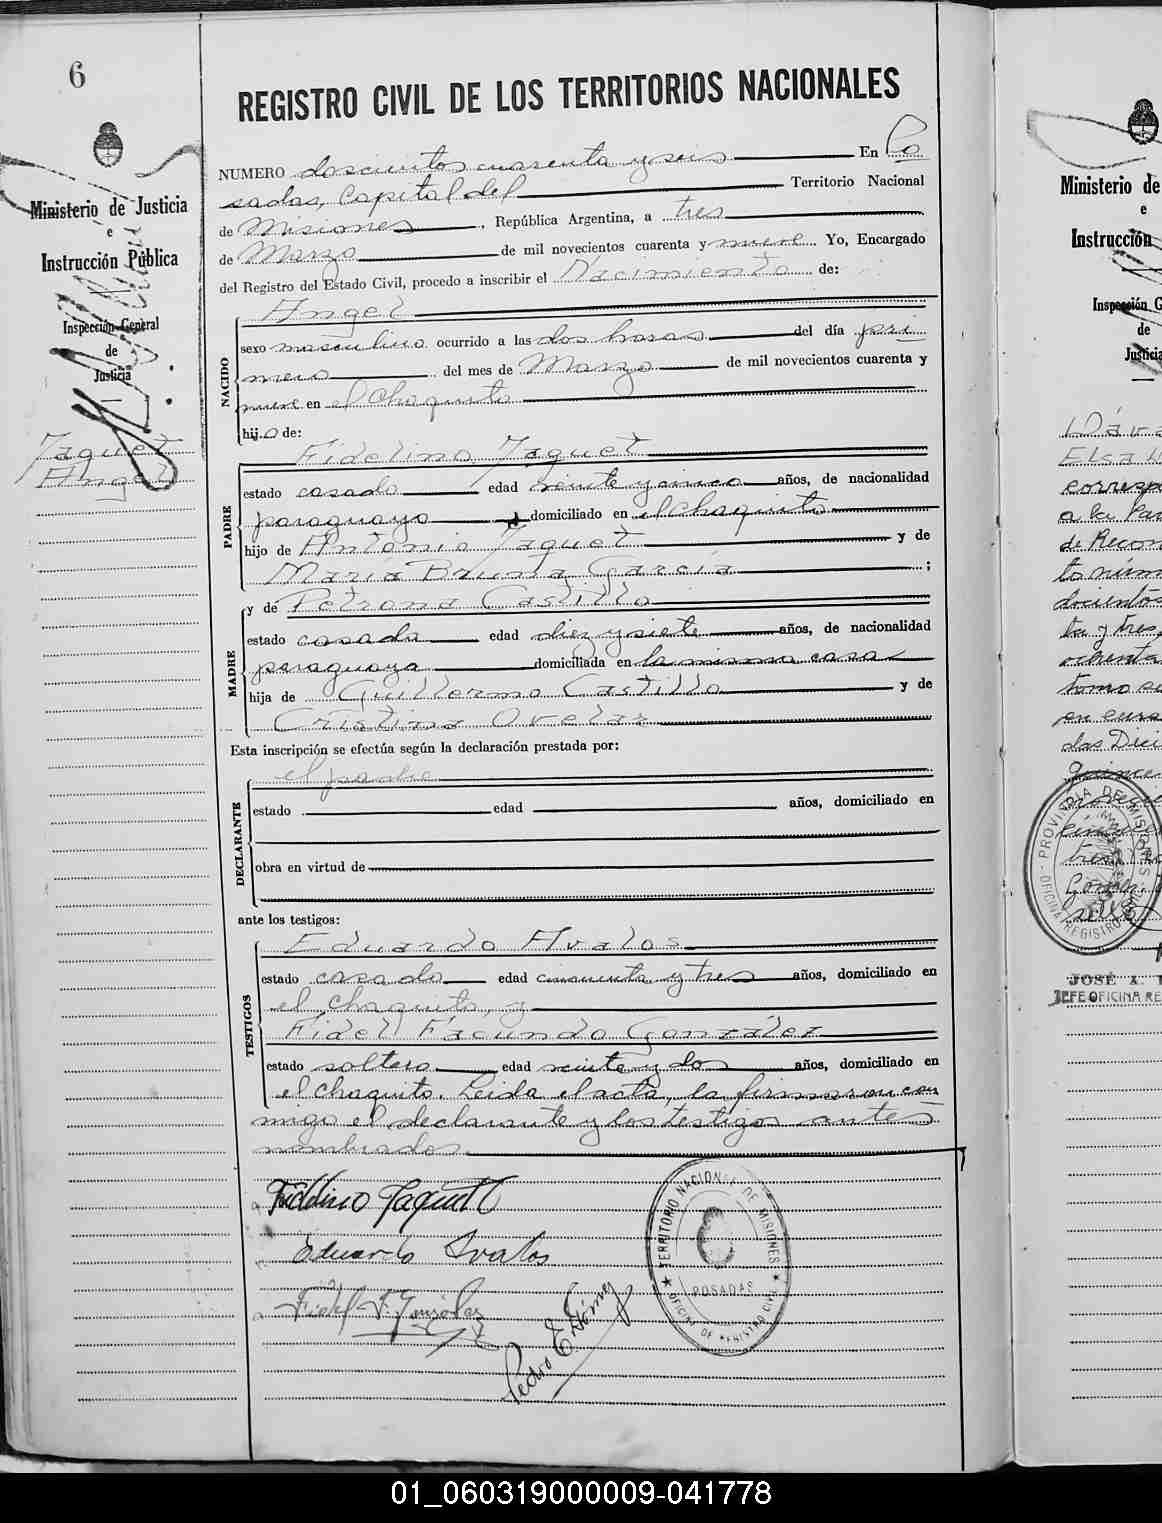 6
REGISTRO CIVIL DE LOS TERRITORIOS NACIONALES
Ministerio de Justicia
e
Instrucción Pública
Inspección General
de
Justicia
Jaquet
Angel
NUMERO doscientos cuarenta y seis En Po
sadas, Capital del Territorio Nacional
de Misiones, República Argentina, a tres
de Marzo de mil novecientos cuarenta y nueve. Yo, Encargado
del Registro del Estado Civil, procedo a inscribir el Nacimiento de:
NACIDO
Angel
sexo masculino ocurrido a las dos horas del día pri
mero del mes de Marzo de mil novecientos cuarenta y
nueve en el Chaquito
hijo de:
PADRE
Fidelino Jaquet
estado casado edad veinte y cinco años, de nacionalidad
paraguayo domiciliado en el chaquito
hijo de Antonio Jaquet y de
María Bruna García ;
MADRE
y de Petrona Castillo
estado casada edad diez y siete años, de nacionalidad
paraguaya domiciliada en la misma casa
hija de Guillermo Castillo y de
Cristina Ovelar
Esta inscripción se efectúa según la declaración prestada por:
DECLARANTE
el padre
estado edad años, domiciliado en
obra en virtud de
ante los testigos:
TESTIGOS
Eduardo Avalos
estado casado edad cincuenta y tres años, domiciliado en
el chaquito, y
Fidel Facundo González
estado soltero edad veinte y dos años, domiciliado en
el chaquito. Leida el acta, la firmaron con
migo el declarante y los testigos antes
nombrados
Fidelino Jaquet
Eduardo Avalos
Fidel F. González
Pedro E. Gómez
TERRITORIO NACIONAL DE MISIONES
POSADAS
OFICINA DE REGISTRO CIVIL
Ministerio de
e
Instrucción
Inspección G
de
Justicia
Elsa
corresp
a la Par
de Recon
to núm
ta y tres
ochenta
tomo se
en curs
das Dici
PROVINCIA DE MISIONES
OFICINA REGISTRO
JOSÉ A.
JEFE OFICINA RE
01_060319000009-041778